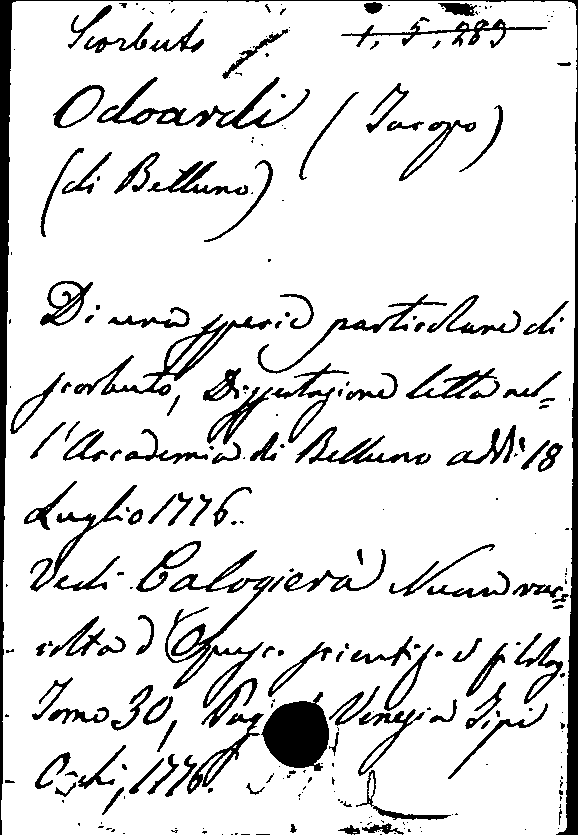 Scorbuto 1, 5, 289
Odoardi (Jacopo)
(di Belluno)
Di una specie particolare di
scorbuto, Dissertazione letta nel=
l'Accademia di Belluno addì 18
Luglio 1776.
Vedi Calogierà Nuova rac=
colta d'Opusc. scientif. e filolog.
Tomo 30, Venezia Tipi
Occhi, 1776.